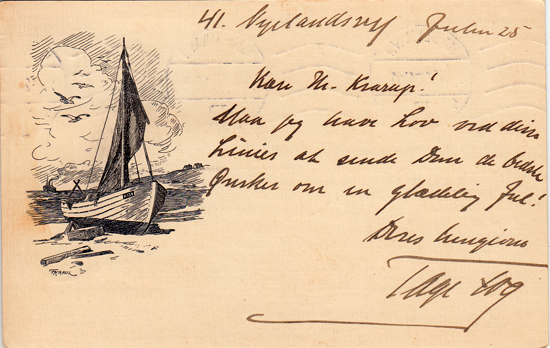 41. Nyelandsvej Julen 25
Kære Hr. Krarup!
Maa jeg have Lov ved disse
Linier at sende Dem de bedste
Ønsker om en glædelig Jul!
Deres hengivne
Tage